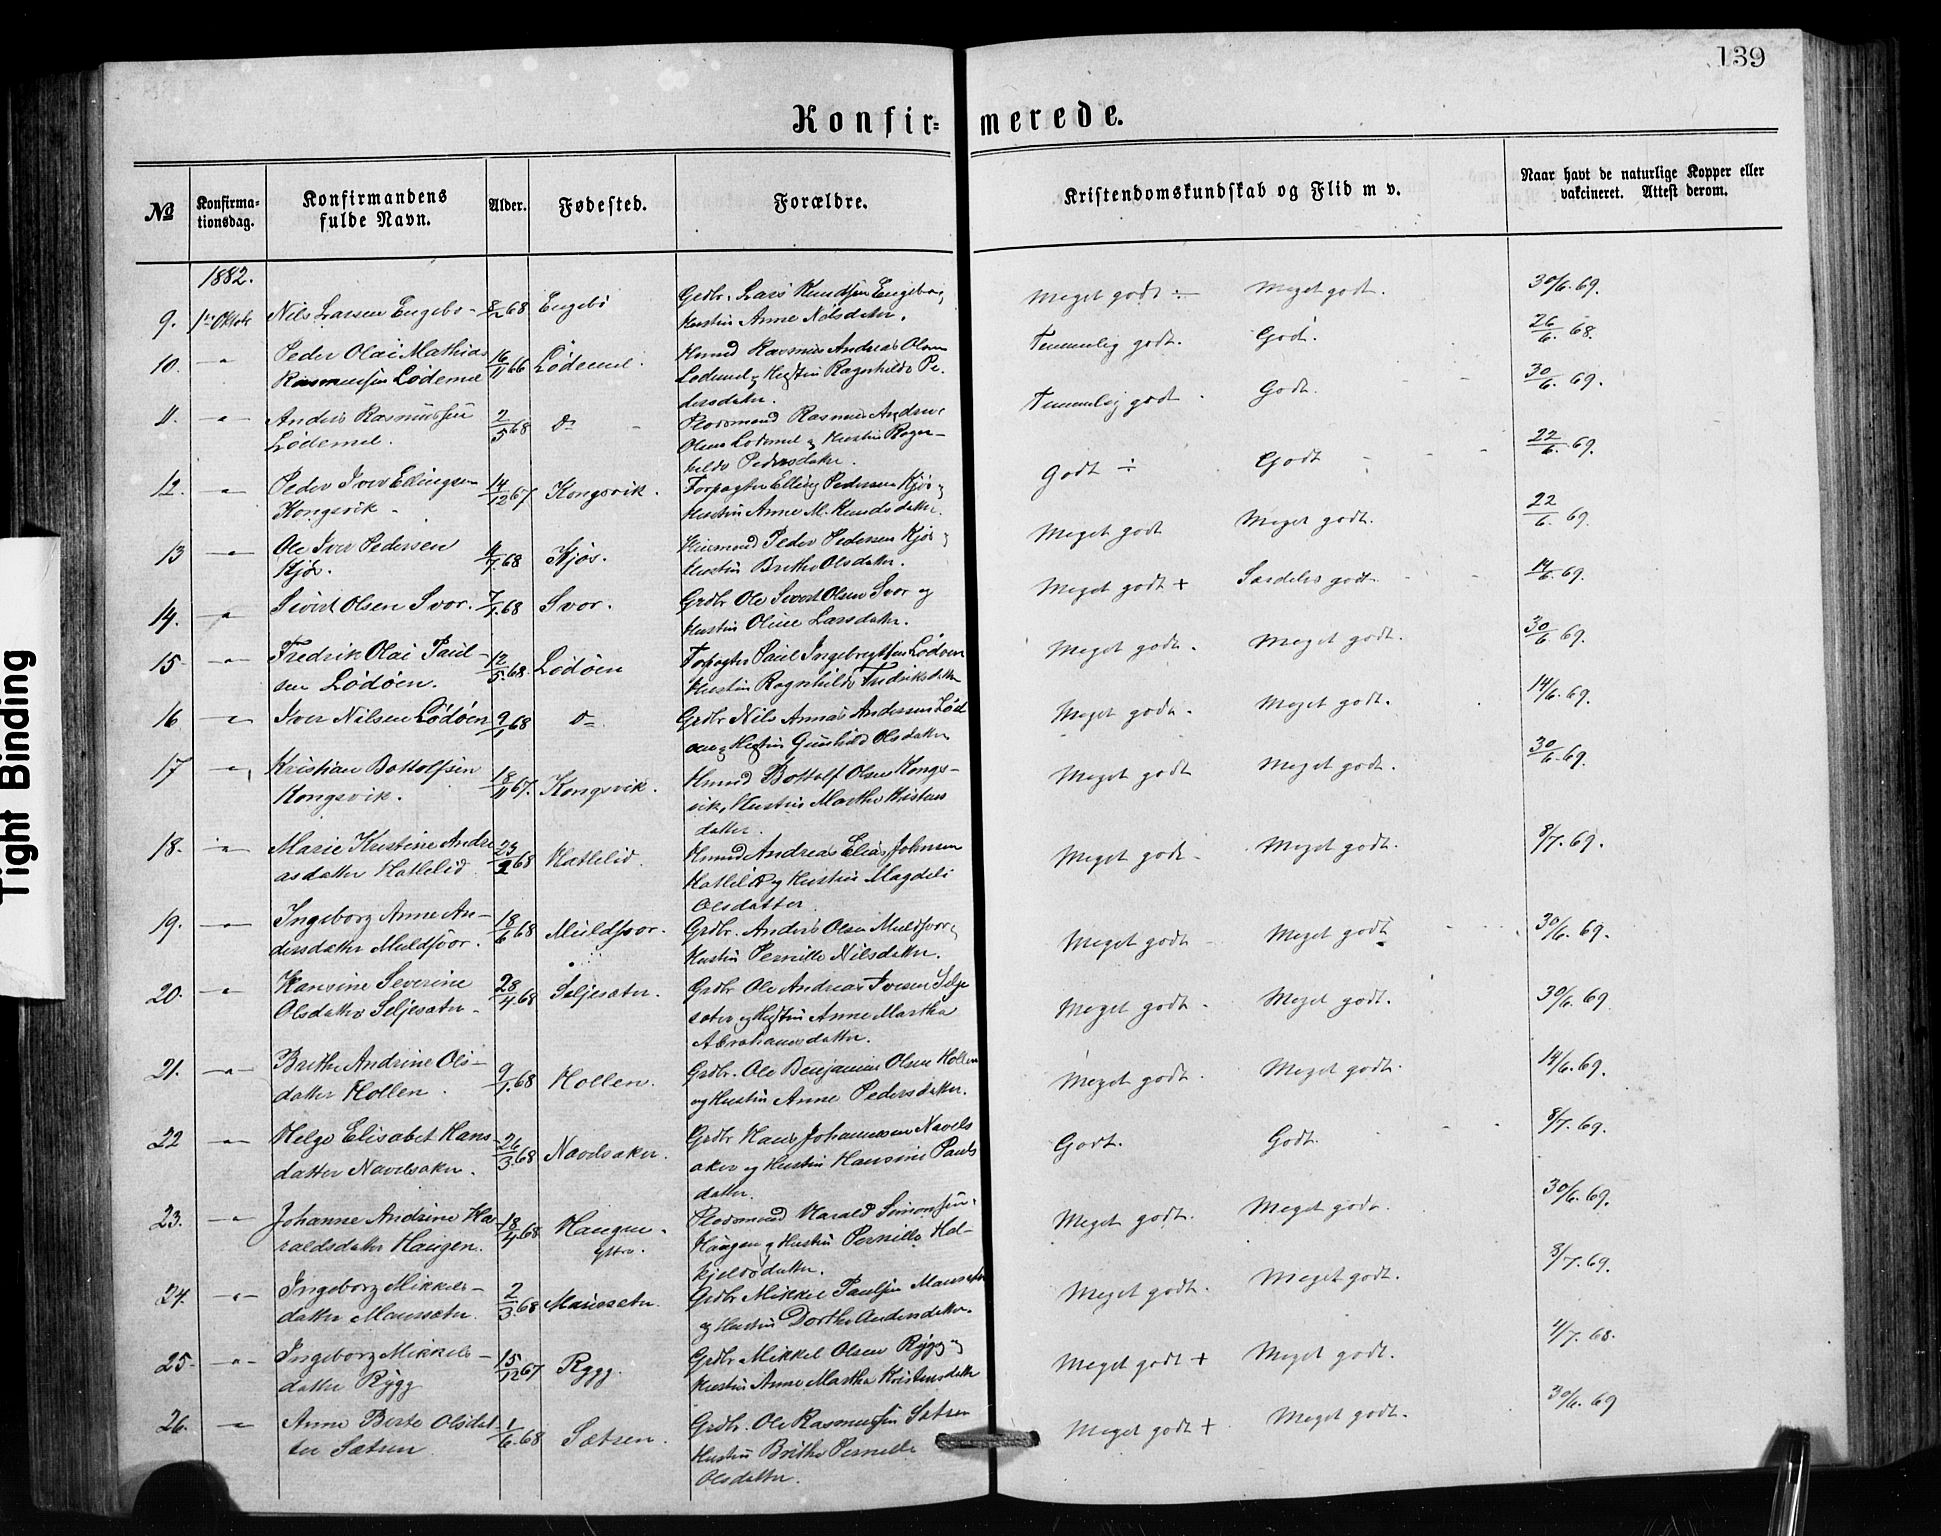 139
Konfir= merede.
№
Konfirma-
tionsdag.
Konfirmandens
fulde Navn.
Alder.
Fødested.
Forældre.
Kristendomskundskab og Flid m v.
Naar havt de naturlige Kopper eller
vakcineret. Attest derom.
1882.
9. 1ste Oktob Nils Larsen Engebø - 8/2 68 Engebø Grdbr. Lars Knudsen Engebø og
Hustru Anne Nilsdatter. Meget godt ÷ Meget godt. 30/6. 69.
10. -"- Peder Olai Mathias 16/11 66 Lødemel. Hmnd Rasmus Andreas Olsen
Rasmussen Lødemel Lødemel og Hustru Ragnhilde Pe-
dersdatter. Temmelig godt. Godt. 26/6. 68.
11. -"- Anders Rasmussen 2/5 68 do Plodsmand Rasmus Andreas
Lødemel. Olsen Lødemel og Hustru Ragn-
hilde Pedersdatter. Temmelig godt. Godt. 30/6. 69.
12. -"- Peder Iver Ellingsen 14/12 67 Kongsvik. Forpagter Elling Pedersen Kjøs og
Kongsvik - Hustru Anne M. Knudsdatter. Godt ÷ Godt 22/6. 69.
13 -"- Ole Iver Pedersen /7. 68 Kjøs. Huusmand Peder Pedersen Kjøs og
Kjøs. Hustru Brithe Olsdatter. Meget godt Meget godt. 22/6. 69.
14. -"- Sivert Olsen Svor. 7/1. 68 Svor. Grdbr Ole Sivert Olsen Svor og
Hustru Oline Larsdatter. Meget godt + Særdeles godt 14/6. 69.
15- -"- Fredrik Olai Paul- 12/5. 68. Lødøen Forpagter Paul Ingebrigtsen Lødøen
sen Lødøen. Hustru Ragnhilde Fredriksdatter Meget godt. Meget godt. 30/6. 69.
16 -"- Iver Nilsen Lødøen 9/1 68 do Grdbr Nils Annas Andersen Lød
øen og Hustru Gunhild Olsdatter Meget godt. Meget godt. 14/6. 69.
17 -"- Kristian Bottolfsen 18/11 67. Kongsvik. Hmnd Bottolf Olsen Kongs-
Kongsvik. vik, Hustru Marthe Kristens
datter. Meget godt Meget godt. 30/6. 69.
18. -"- Marie Kristine Andre 23/2 68 Hatlelid. Hmnd Andreas Elias Johnsen
asdatter Hatlelid Hatlelid og Hustru Magdeli
Olsdatter Meget godt - Meget godt. 8/7. 69.
19. -"- Ingeborg Anne An- 18/6 68 Muldsvor. Grdbr. Anders Olsen Muldsvor og
dersdatter Muldsvor. Hustru Pernille Nilsdatter. Meget godt - Meget godt 30/6. 69.
20. -"- Hansine Severine 28/4. 68 Seljesæter. Grdbr Ole Andreas Ivesen Selje
Olsdatter Seljesæter - sæter og Hustru Anne Martha
Abrahamsdatter. Meget godt. Meget godt. 30/6. 69
21. -"- Brithe Andrine Ols- 9/1. 68 Hollen. Grdbr. Ole Benjamin Olsen Hollen
datter Hollen. og Hustru Anne Pedersdatter. Meget godt. Meget godt. 14/6. 69.
22 -"- Helge Elisabet Hans- 26/3. 68 Navelsaker. Grdbr Hans Johannessen Navels
datter Navelsaker. aker og Hustru Hansine Pauls
datter. Godt. Godt. 8/7. 69.
23. -"- Johanne Andrine Ha- 18/4 68 Haugen Plodsmand Harald Simonsen
raldsdatter Haugen. yttre. Haugen og Hustru Pernille Hal-
kjelsdatter. Meget godt. Meget godt. 30/6. 69.
24. -"- Ingeborg Mikkels- 2/3. 68 Maursæter. Grdbr Mikkel Paulsen Maursæter
datter Maursæter og Hustru Dorthe Andersdatter. Meget godt. Meget godt. 8/7. 69.
25. -"- Ingeborg Mikkels- 15/12 67 Rygg. Grdbr Mikkel Olsen Rygg og
datter Rygg Hustru Anne Martha Kristensdatter Meget godt + Meget godt. 4/7. 68.
26. -"- Anne Berte Olsdat 1/6. 68 Sætren. Grdbr. Ole Rasmussen Sætren
ter Sætren Hustru Brithe Pernille
Olsdatter. Meget godt + Meget godt. 30/6. 69
Tight Binding